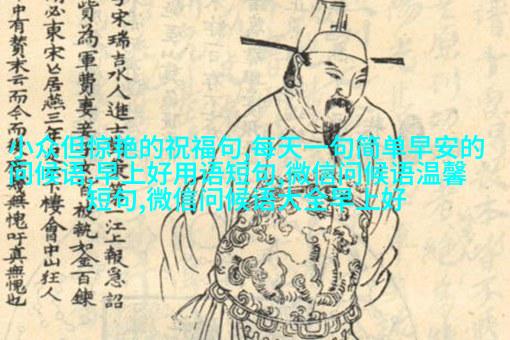 宋瑞吉水人進士第一江上報急詔
貲為軍費妻妾子女被執如金百鍊
必東宋亡居燕三年樓會中山狂人
中有贊末云而今而無愧吁真無愧也
小众但惊艳的祝福句,每天一句简单早安的
问候语,早上好用语短句,微信问候语温馨
短句,微信问候语大全早上好